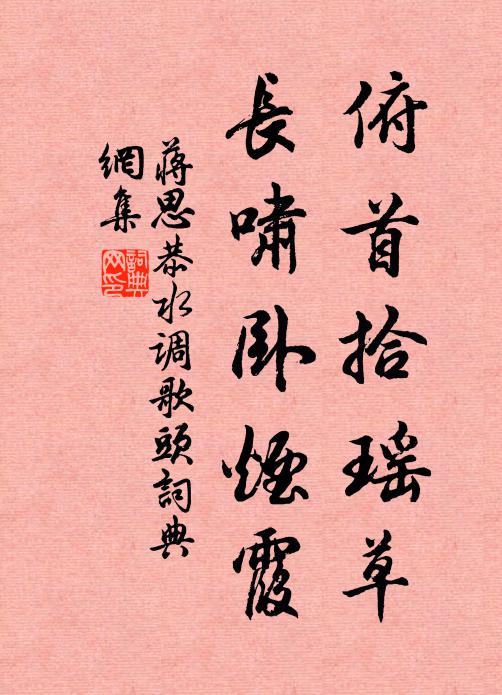 俯首拾瑶草
長嘯卧煙霞
蔣思恭水调歌頭詞典
網集
詞典
网印